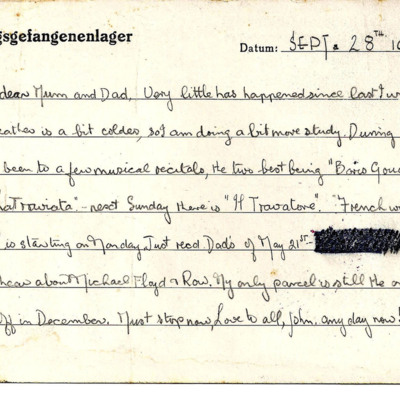 gsgefangenenlager
Datum: SEPT. 28TH 19
dear Mum and Dad, Very little has happened since last I w
eather is a bit colder, so I am doing a bit more study. During
been to a few musical recitals, the two best being "Boris Goud
a Traviata" - next Sunday there is "Il Trovatore". "French w
is starting on Monday. Just read Dad's of May 21ST -
hear about Michael Floyd & Row. My only parcel is still the o
off in December. Must stop now, Love to all, John. any day now!